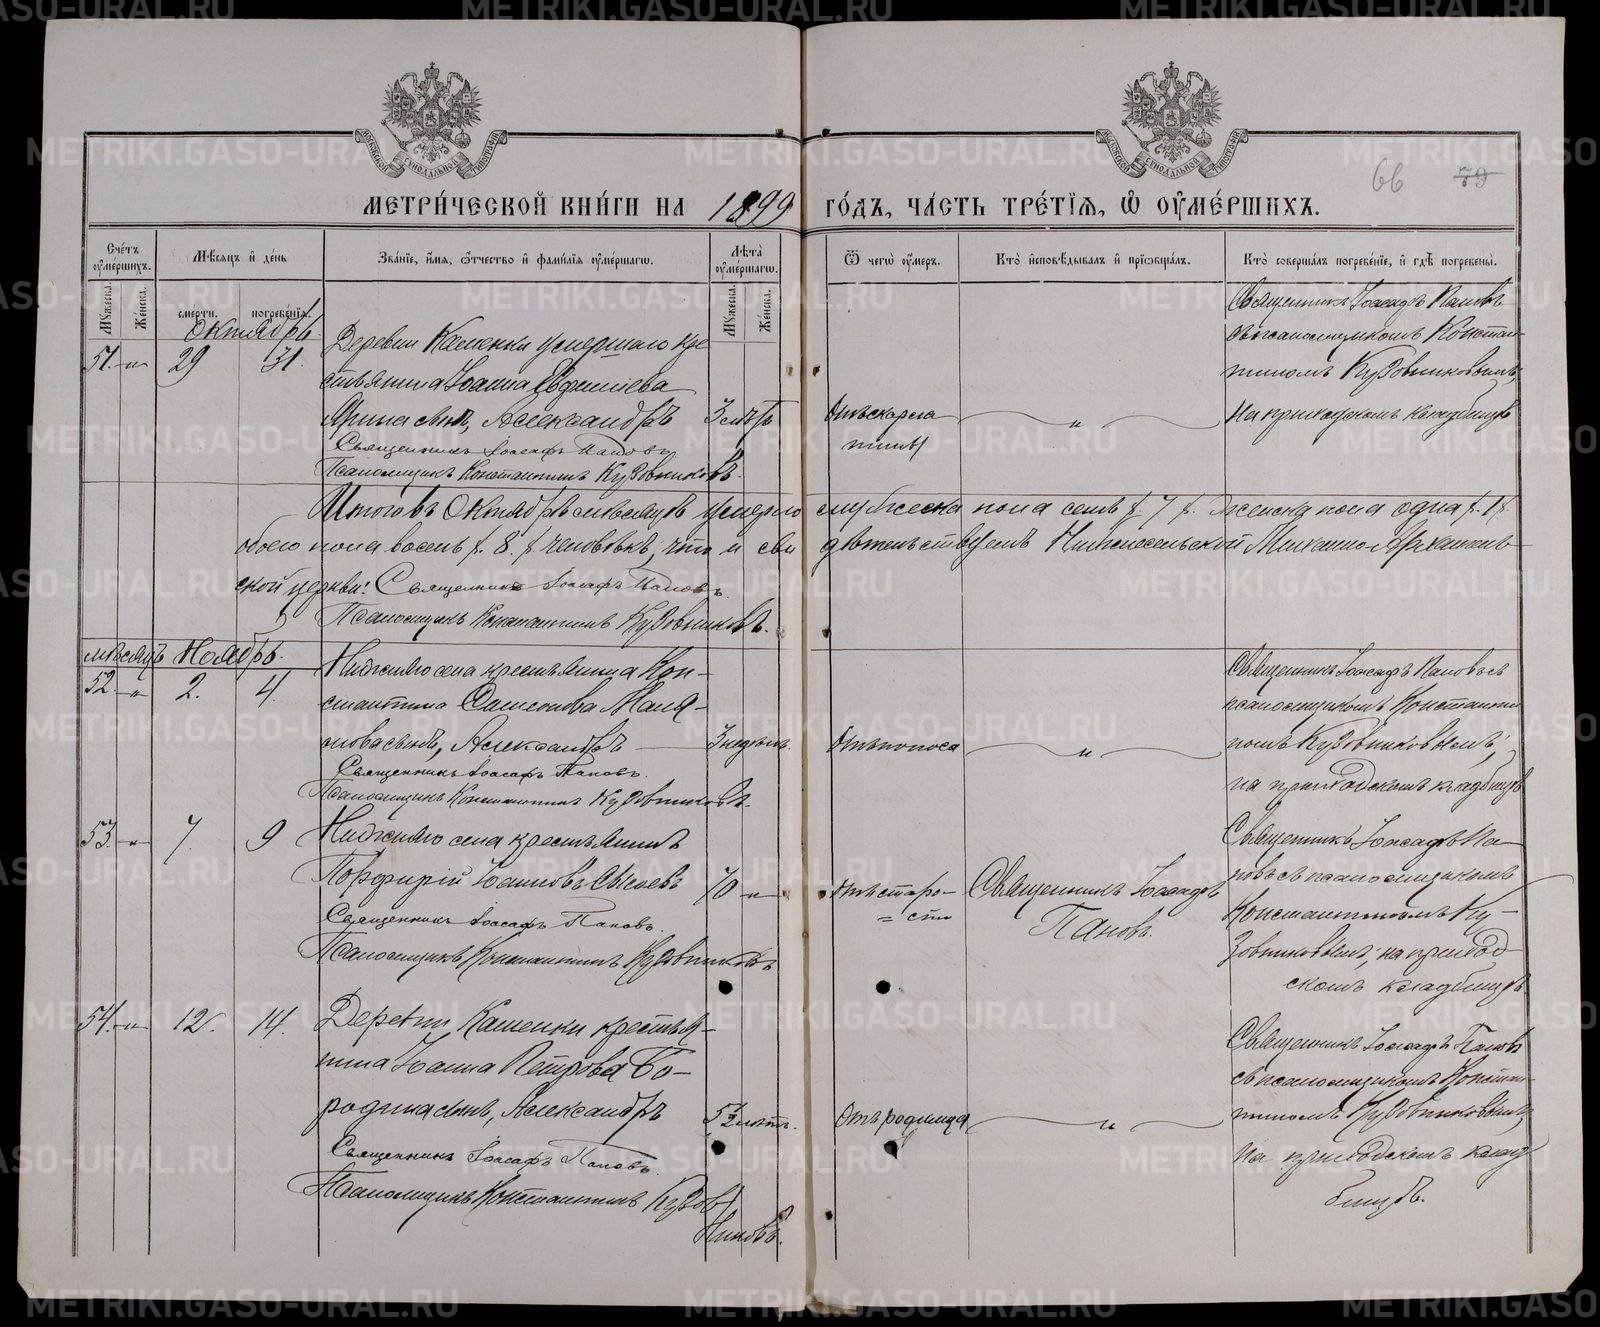 МЕТРИ́ЧЕСКОЙ КНИ́ГИ НА 1899 ГО́ДЪ, ЧА́СТЬ ТРЕ́ТІѦ, Ѽ ОУМЕ́РШИХЪ.
66 79
Сче́тъ оуме́ршихъ.
Мѣсѧцъ и де́нь
Зва́нїе, и́мѧ, ѻ҆́тчество и фами́лїѧ оуме́ршагѡ.
Лѣ́та оуме́ршагѡ.
Ѿ чегѡ̀ оу́меръ.
Кто̀ и҆сповѣ́дывалъ и прїѡбща́лъ.
Кто̀ соверша́лъ погребе́нїе, и гдѣ̀ погребены̀.
Мꙋ́жеска.
Же́нска.
сме́рти.
погребе́нїѧ.
Мꙋ́жеска.
Же́нска.
Октябрь.
51. -„- 29 31.
Деревни Каменки умершаго кре
стьянина Іоанна Евфимiева
сынъ, Александръ 3
Священникъ Іоасафъ Пановъ
Псаломщикъ Константинъ Кузовниковъ.
Отъ скарла
тины
„
Священникъ Іоасафъ Пановъ
съ псаломщикомъ Констан
тиномъ Кузовниковымъ,
на приходскомъ кладбищѣ
Итого въ Октябрѣ мѣсяцѣ умерло мужеска пола семь /. 7 /. женска пола одна /. 1 /.
обоего пола восемь /. 8. /. человѣкъ, что и сви дѣтельствуемъ Нижнесельской Михаило-Архангель
ской церкви: Священникъ Іоасафъ Пановъ.
Псаломщикъ Константинъ Кузовниковъ.
мѣсяцъ Ноябрь.
52. -„- 2. 4.
Нижняго села крестьянина Кон-
стантина Самсонова
сынъ, Александръ 3 недѣль.
Священникъ Іоасафъ Пановъ.
Псаломщикъ Константинъ Кузовниковъ.
Отъ поноса
„
Священникъ Іоасафъ Пановъ съ
псаломщикомъ Константи
номъ Кузовниковымъ,
на приходскомъ кладбищѣ
53. -„- 7. 9
Нижняго села крестьянинъ
Порфирій Іоанновъ Сысоевъ 70 -„-
Священникъ Іоасафъ Пановъ.
Псаломщикъ Константинъ Кузовниковъ
Отъ старо-
= сти
Священникъ Іоасафъ
Пановъ.
Священникъ Іоасафъ Па
новъ съ псаломщикомъ
Константиномъ Ку-
зовниковымъ, на приход
скомъ кладбищѣ
54. -„- 12. 14.
Деревни Каменки крестья-
нина Іоанна Петрова Бо-
родина сынъ, Александръ
Священникъ Іоасафъ Пановъ.
Псаломщикъ Константинъ Кузов
никовъ.
Отъ родимца
„
Священникъ Іоасафъ Пановъ
съ псаломщикомъ Констан-
тиномъ Кузовниковымъ,
на приходскомъ клад
бищѣ.
METRIKI.GASO-URAL.RU